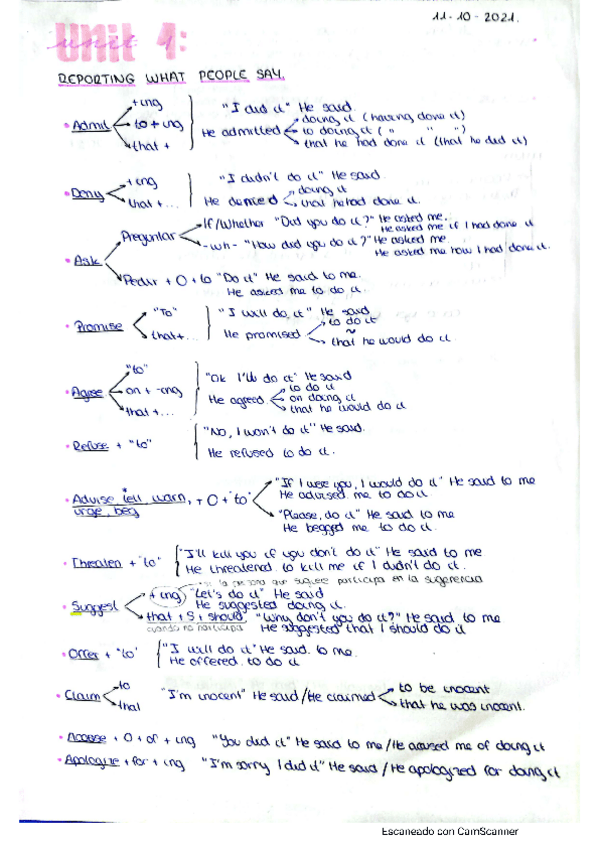 11-10-2021.
Unit 1:
REPORTING WHAT PEOPLE SAY.
+ing
"I did it" He said
doing it (having done it)
• Admit to + ing He admitted to doing it ( " " )
that + that he had done it (that he did it)
+ing "I didn't do it" He said
• Deny He denied doing it
that +... that he had done it.
If/Whether "Did you do it?" He asked me.
Preguntar He asked me if I had done it
-wh- "How did you do it?" He asked me.
• Ask He asked me how I had done it.
Pedir + O + to "Do it" He said to me.
He asked me to do it.
"To" "I will do it" He said
• Promise He promised to do it
that+... that he would do it.
"to" "Ok I'll do it" He said
• Agree on + -ing He agreed to do it
on doing it
that +... that he would do it
• Refuse + "to" "No, I won't do it" He said.
He refused to do it.
"If I were you, I would do it" He said to me
• Advise, tell, warn, + O + "to" He advised me to do it
urge, beg "Please, do it" He said to me
He begged me to do it.
• Threaten + "to" "I'll kill you if you don't do it" He said to me
He threatened to kill me if I didn't do it.
si la persona que sugiere participa en la sugerencia
+ ing "Let's do it" He said
• Suggest He suggested doing it.
that + S + should "Why don't you do it?" He said to me
cuando no participa He suggested that I should do it
• Offer + "to" "I will do it" He said to me.
He offered to do it
• Claim to "I'm inocent" He said/He claimed to be inocent
that that he was inocent.
• Accuse + O + of + ing "You did it" He said to me/He accused me of doing it
• Apologize + for + ing "I'm sorry I did it" He said/He apologized for doing it
Escaneado con CamScanner